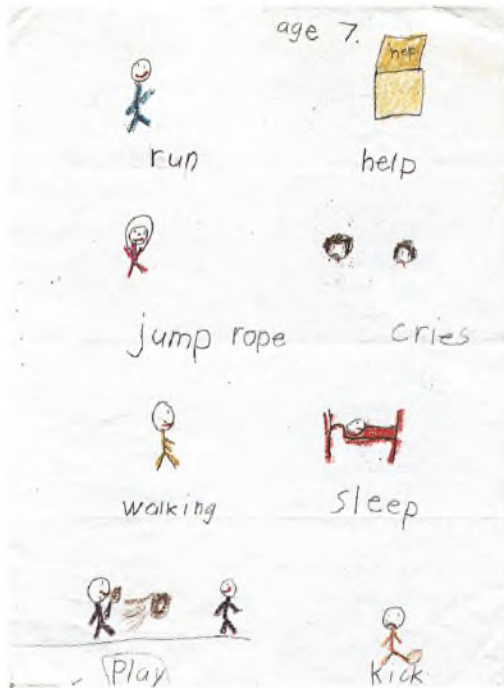 age 7.
help
run help
jump rope cries
walking sleep
Play kick